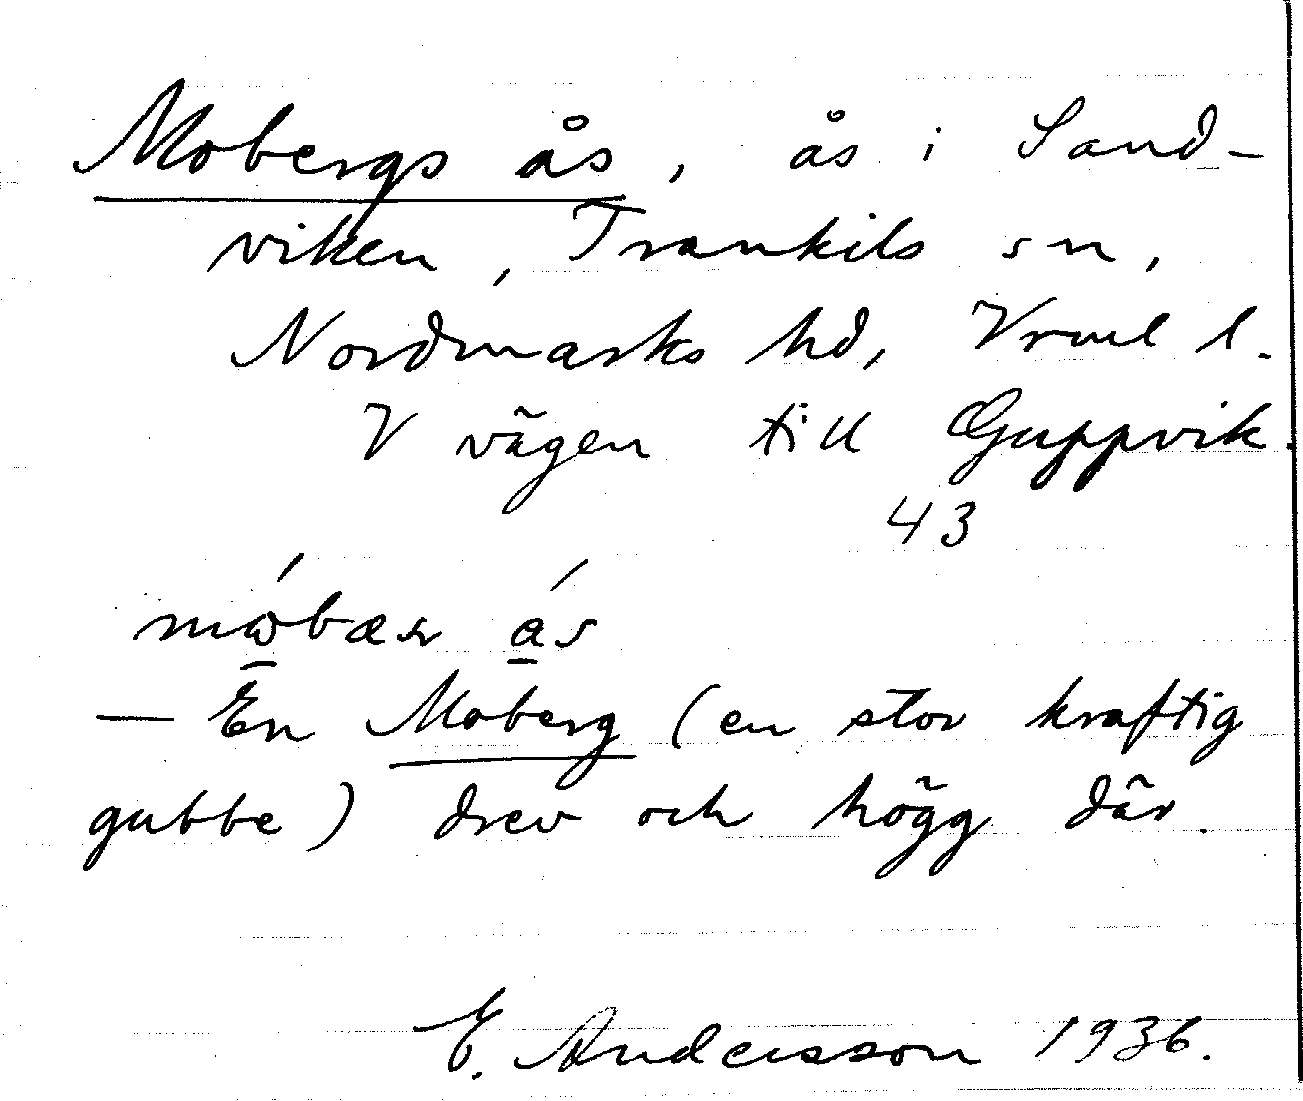 Mobergs ås, ås i Sand-
viken, Trankils sn,
Nordmarks hd, Vrml l.
V vägen till Guppvik.
43
— En Moberg (en stor kraftig
gubbe) drev och högg där.
E. Andersson 1936.